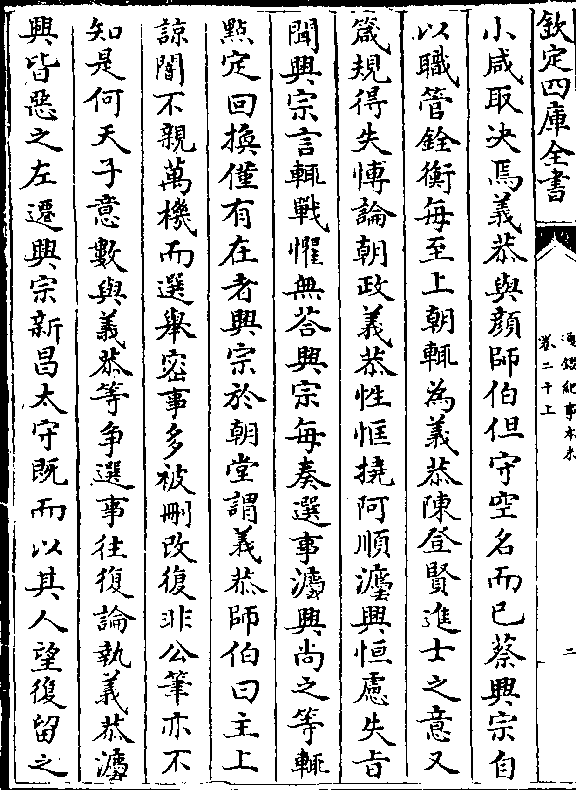 欽定四庫全書
通鑑紀事本末
卷二十上
二
小咸取决焉義恭與顔師伯但守空名而已蔡興宗自
以職管銓衡每至上朝輒為義恭陳登賢進士之意又
箴規得失愽論朝政義恭性恇撓阿順灋興恒慮失㫖
聞興宗言輒戰懼無荅興宗每奏選事灋興尚之等輒
點定回換僅有在者興宗於朝堂謂義恭師伯曰主上
諒闇不親萬機而選舉密事多被刪改復非公筆亦不
知是何天子意數與義恭等争選事往復論執義恭灋
興皆惡之左遷興宗新昌太守既而以其人望復留之